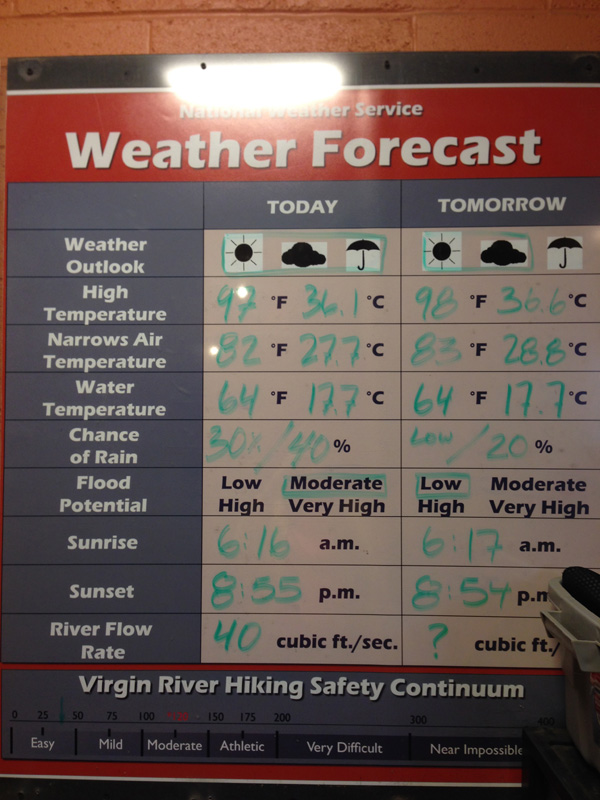 National Weather Service
Weather Forecast
TODAY TOMORROW
Weather Outlook
High Temperature 97 °F 36.1 °C 98 °F 36.6 °C
Narrows Air Temperature 82 °F 27.7 °C 83 °F 28.8 °C
Water Temperature 64 °F 17.7 °C 64 °F 17.7 °C
Chance of Rain 30% / 40 % LOW / 20 %
Flood Potential Low Moderate Low Moderate
High Very High High Very High
Sunrise 6:16 a.m. 6:17 a.m.
Sunset 8:55 p.m. 8:54 p.m
River Flow Rate 40 cubic ft./sec. ? cubic ft./
Virgin River Hiking Safety Continuum
0 25 50 75 100 150 175 200 300 400
Easy Mild Moderate Athletic Very Difficult Near Impossible